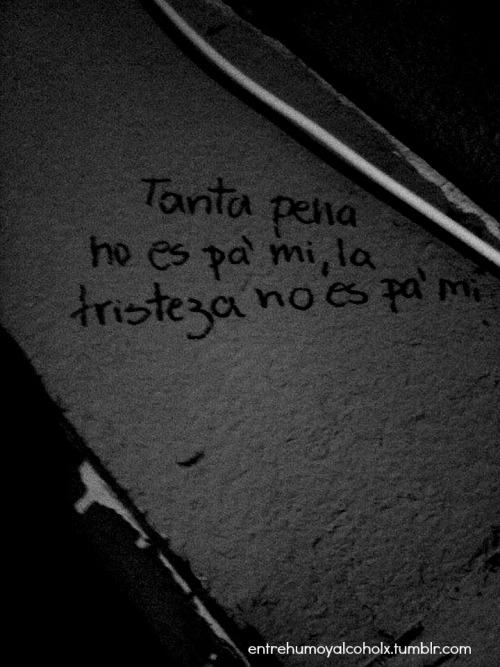 Tanta pena
no es pa' mi, la
tristeza no es pa' mi
entrehumoyalcoholx.tumblr.com